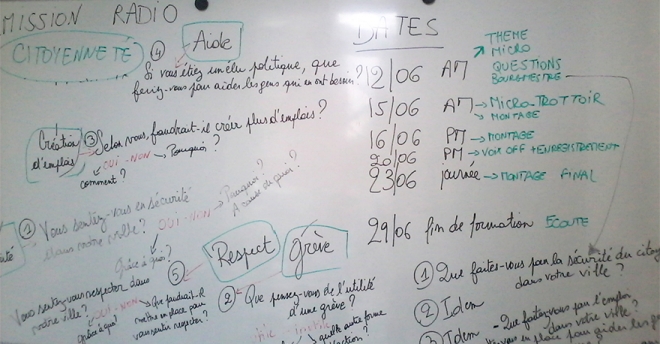 MISSION RADIO
CITOYENNETÉ
④ Aide
Si vous étiez un élu politique, que
feriez-vous pour aider les gens qui en ont besoin?
Création
d'emplois
③ Selon vous, faudrait-il créer plus d'emplois?
OUI - NON → Pourquoi?
comment?
① Vous sentez-vous en sécurité
dans notre ville?
OUI - NON → Pourquoi?
Grâce à quoi?
⑤ Respect
Vous sentez-vous respecter dans
notre ville?
OUI - NON → Que faudrait-il
mettre en place pour
vous sentir respecter?
Grâce à quoi?
Grève
② Que pensez-vous de l'utilité
d'une grève?
quelle autre forme
DATES
12/06 AM
THEME
MICRO
QUESTIONS
BOURGMESTRE
15/06 AM → MICRO-TROTTOIR
→ MONTAGE
16/06 PM → MONTAGE
20/06 PM → VOIX OFF + ENREGISTREMENT
23/06 journée → MONTAGE FINAL
29/06 fin de formation ECOUTE
① Que faites-vous par la sécurité du
dans votre ville?
② Idem - Que faites-vous pour l'emploi
dans votre ville?
③ Idem
en place pour aider les